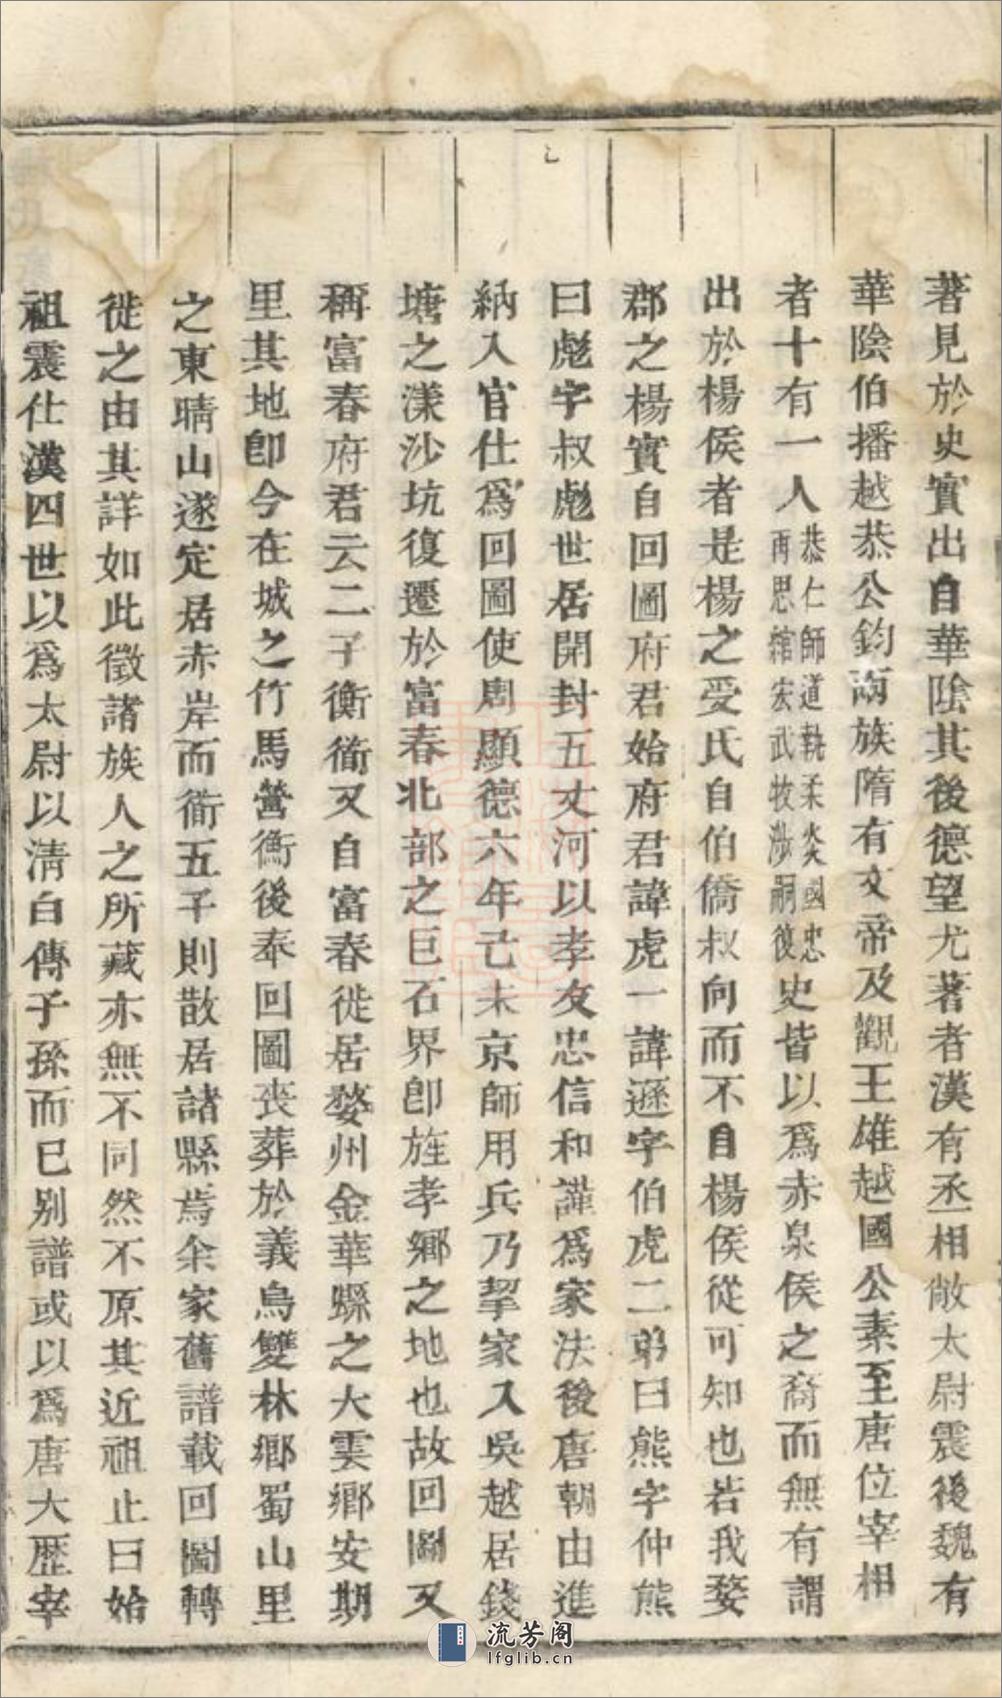 著見於史實出自華陰其後德望尤著者漢有丞相敞太尉震後魏有
華陰伯播越恭公鈞兩族隋有文帝及觀王雄越國公素至唐位宰相
者十有一人恭仁師道執柔炎國忠再思綰宏武牧涉嗣復史皆以爲赤泉侯之裔而無有謂
出於楊侯者是楊之受氏自伯僑叔向而不自楊侯從可知也若我婺
郡之楊實自回圖府君始府君諱虎一諱遜字伯虎二弟曰熊字仲熊
曰彪字叔彪世居開封五丈河以孝友忠信和謹爲家法後唐朝由進
納入官仕爲回圖使周顯德六年己未京師用兵乃挈家入吳越居錢
塘之漾沙坑復遷於富春北部之巨石界卽旌孝鄉之地也故回圖又
稱富春府君云二子衡衕又自富春徙居婺州金華縣之大雲鄉安期
里其地卽今在城之竹馬營衡後奉回圖喪葬於義烏雙林鄉蜀山里
之東晴山遂定居赤岸而衕五子則散居諸縣焉余家舊譜載回圖轉
徙之由其詳如此徵諸族人之所藏亦無不同然不原其近祖止曰始
祖震仕漢四世以爲太尉以淸白傳子孫而已别譜或以爲唐大歷宰
流芳阁
lfglib.cn